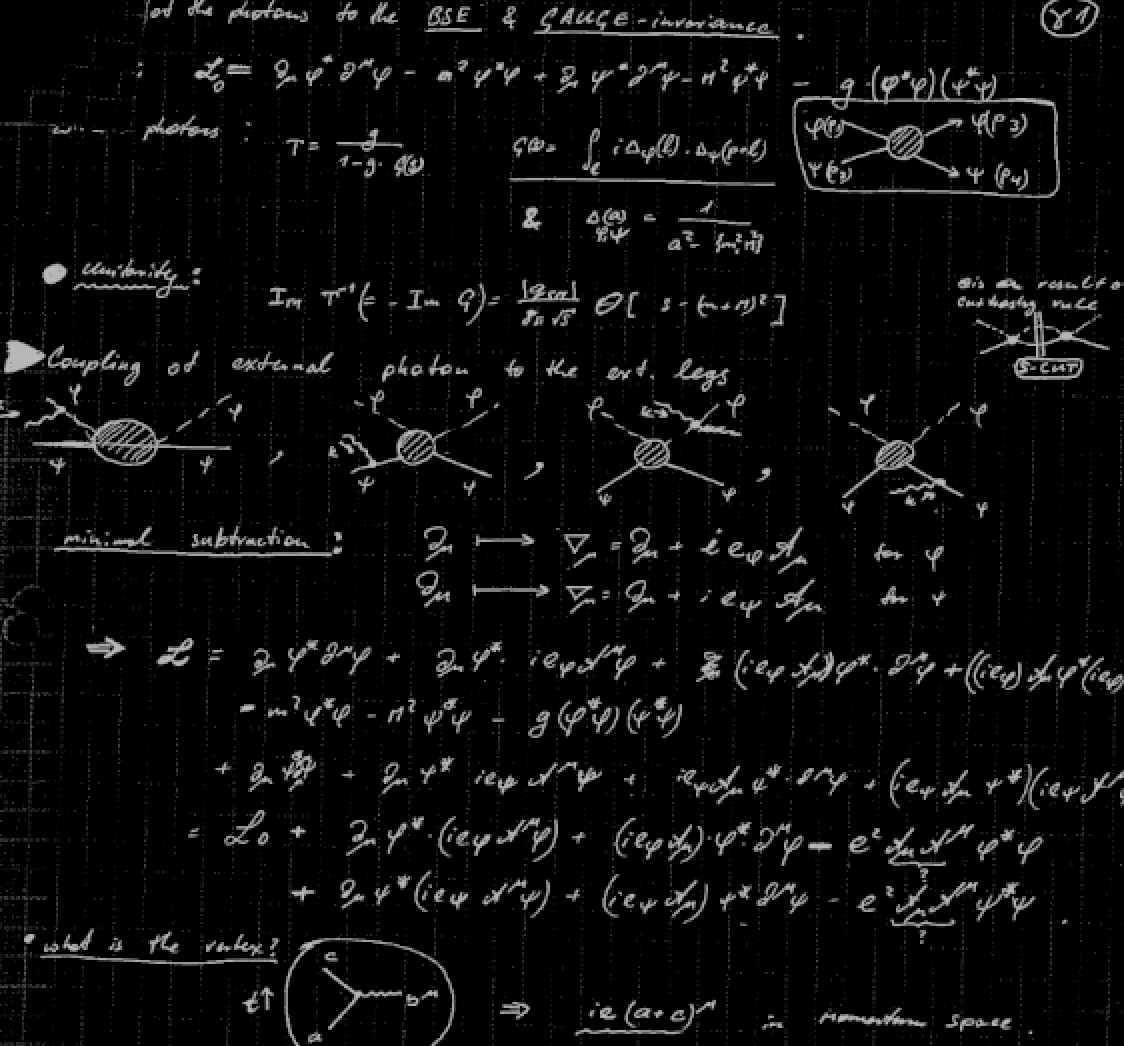 of the photons to the BSE & GAUGE-invariance. γ1
: ℒ₀ = ∂_μ φ* ∂^μ φ - m² φ*φ + ∂_μ ψ* ∂^μ ψ - M² ψ*ψ - g·(φ*φ)(ψ*ψ)
photons : T = g / (1 - g·G(s)) G(s) = ∫_ℓ i Δ_φ(ℓ)·Δ_ψ(p-ℓ)
φ(p₁) φ(p₃)
ψ(p₂) ψ(p₄)
& Δ(a)_{φ,ψ} = 1 / (a² - {m², M²})
Unitarity: Im T⁻¹ (= - Im G) = |q_cm| / 8π√s Θ[ s - (m+M)² ]
result
Cutkosky rule
S-CUT
Coupling of external photon to the ext. legs
φ φ φ φ φ φ φ φ
ψ ψ , ψ ψ , ψ ψ , ψ ψ
minimal subtraction: ∂_μ ⟼ ∇_μ = ∂_μ + i e_φ A_μ for φ
∂_μ ⟼ ∇_μ = ∂_μ + i e_ψ A_μ for ψ
⇒ ℒ = ∂_μ φ* ∂^μ φ + ∂_μ φ*· i e_φ A^μ φ + (i e_φ A_μ) φ*· ∂^μ φ + ((i e_φ) A_μ φ* (i e_φ
- m² φ*φ - M² ψ*ψ - g(φ*φ)(ψ*ψ)
+ ∂_μ + ∂_μ ψ* i e_ψ A^μ ψ + i e_ψ A_μ ψ*· ∂^μ ψ + (i e_ψ A_μ ψ*)(i e_ψ A^μ
= ℒ₀ + ∂_μ φ*·(i e_φ A^μ φ) + (i e_φ A_μ)·φ* ∂^μ φ - e² A_μ A^μ φ*φ
?
+ ∂_μ ψ* (i e_ψ A^μ ψ) + (i e_ψ A_μ) ψ* ∂^μ ψ - e² A_μ A^μ ψ*ψ .
?
• what is the vertex?
t↑ c a b μ ⇒ ie (a+c)^μ in momentum space.